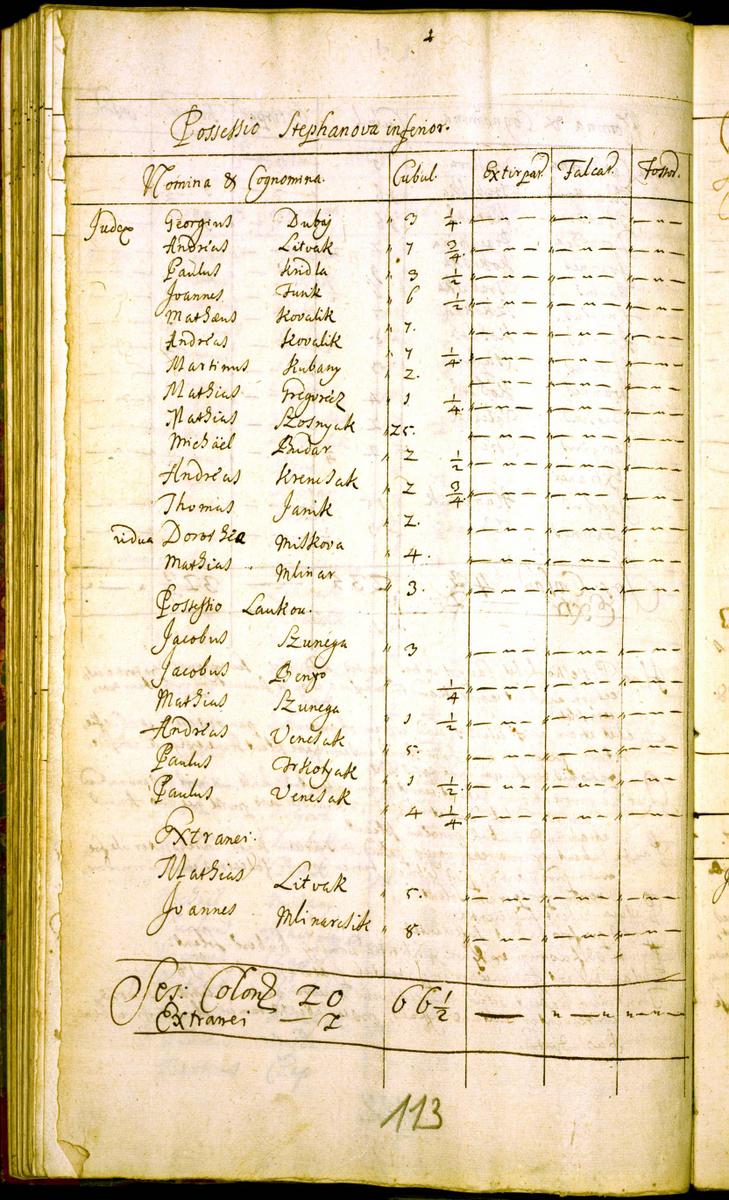 Possessio Stephanova inferior.
Nomina & Cognomina. Cubul. Extirpat. Falcat. Fossor.
Judex Georgius Dubaj " 3 1/4
Andreas Litvak " 7 3/4
Paulus Kridla " 3 1/2
Joannes Funk " 6 1/2
Mathaeus Kovalik " 7.
Andreas Kovalik " 7 1/4
Martinus Kubany " 2.
Mathias Gregorecz " 1 1/4
Mathias Szosnyak " 25.
Michäel Budar " 2 1/2
Andreas Krencsak " 2 3/4
Thomas Janik " 2.
vidua Dorothea Miskova " 4.
Mathias Mlinar " 3.
Possessio Laukou.
Jacobus Szunega " 3
Jacobus Benyo " 1/4
Mathias Szunega " 1 1/2
Andreas Vencsak " 5.
Paulus " 1 1/2
Paulus Vencsak " 4 1/4
Extranei.
Mathias Litvak " 5.
Joannes Mlinarcsik " 8.
Ses: Colon 20 66 1/2
Extranei — 2
113